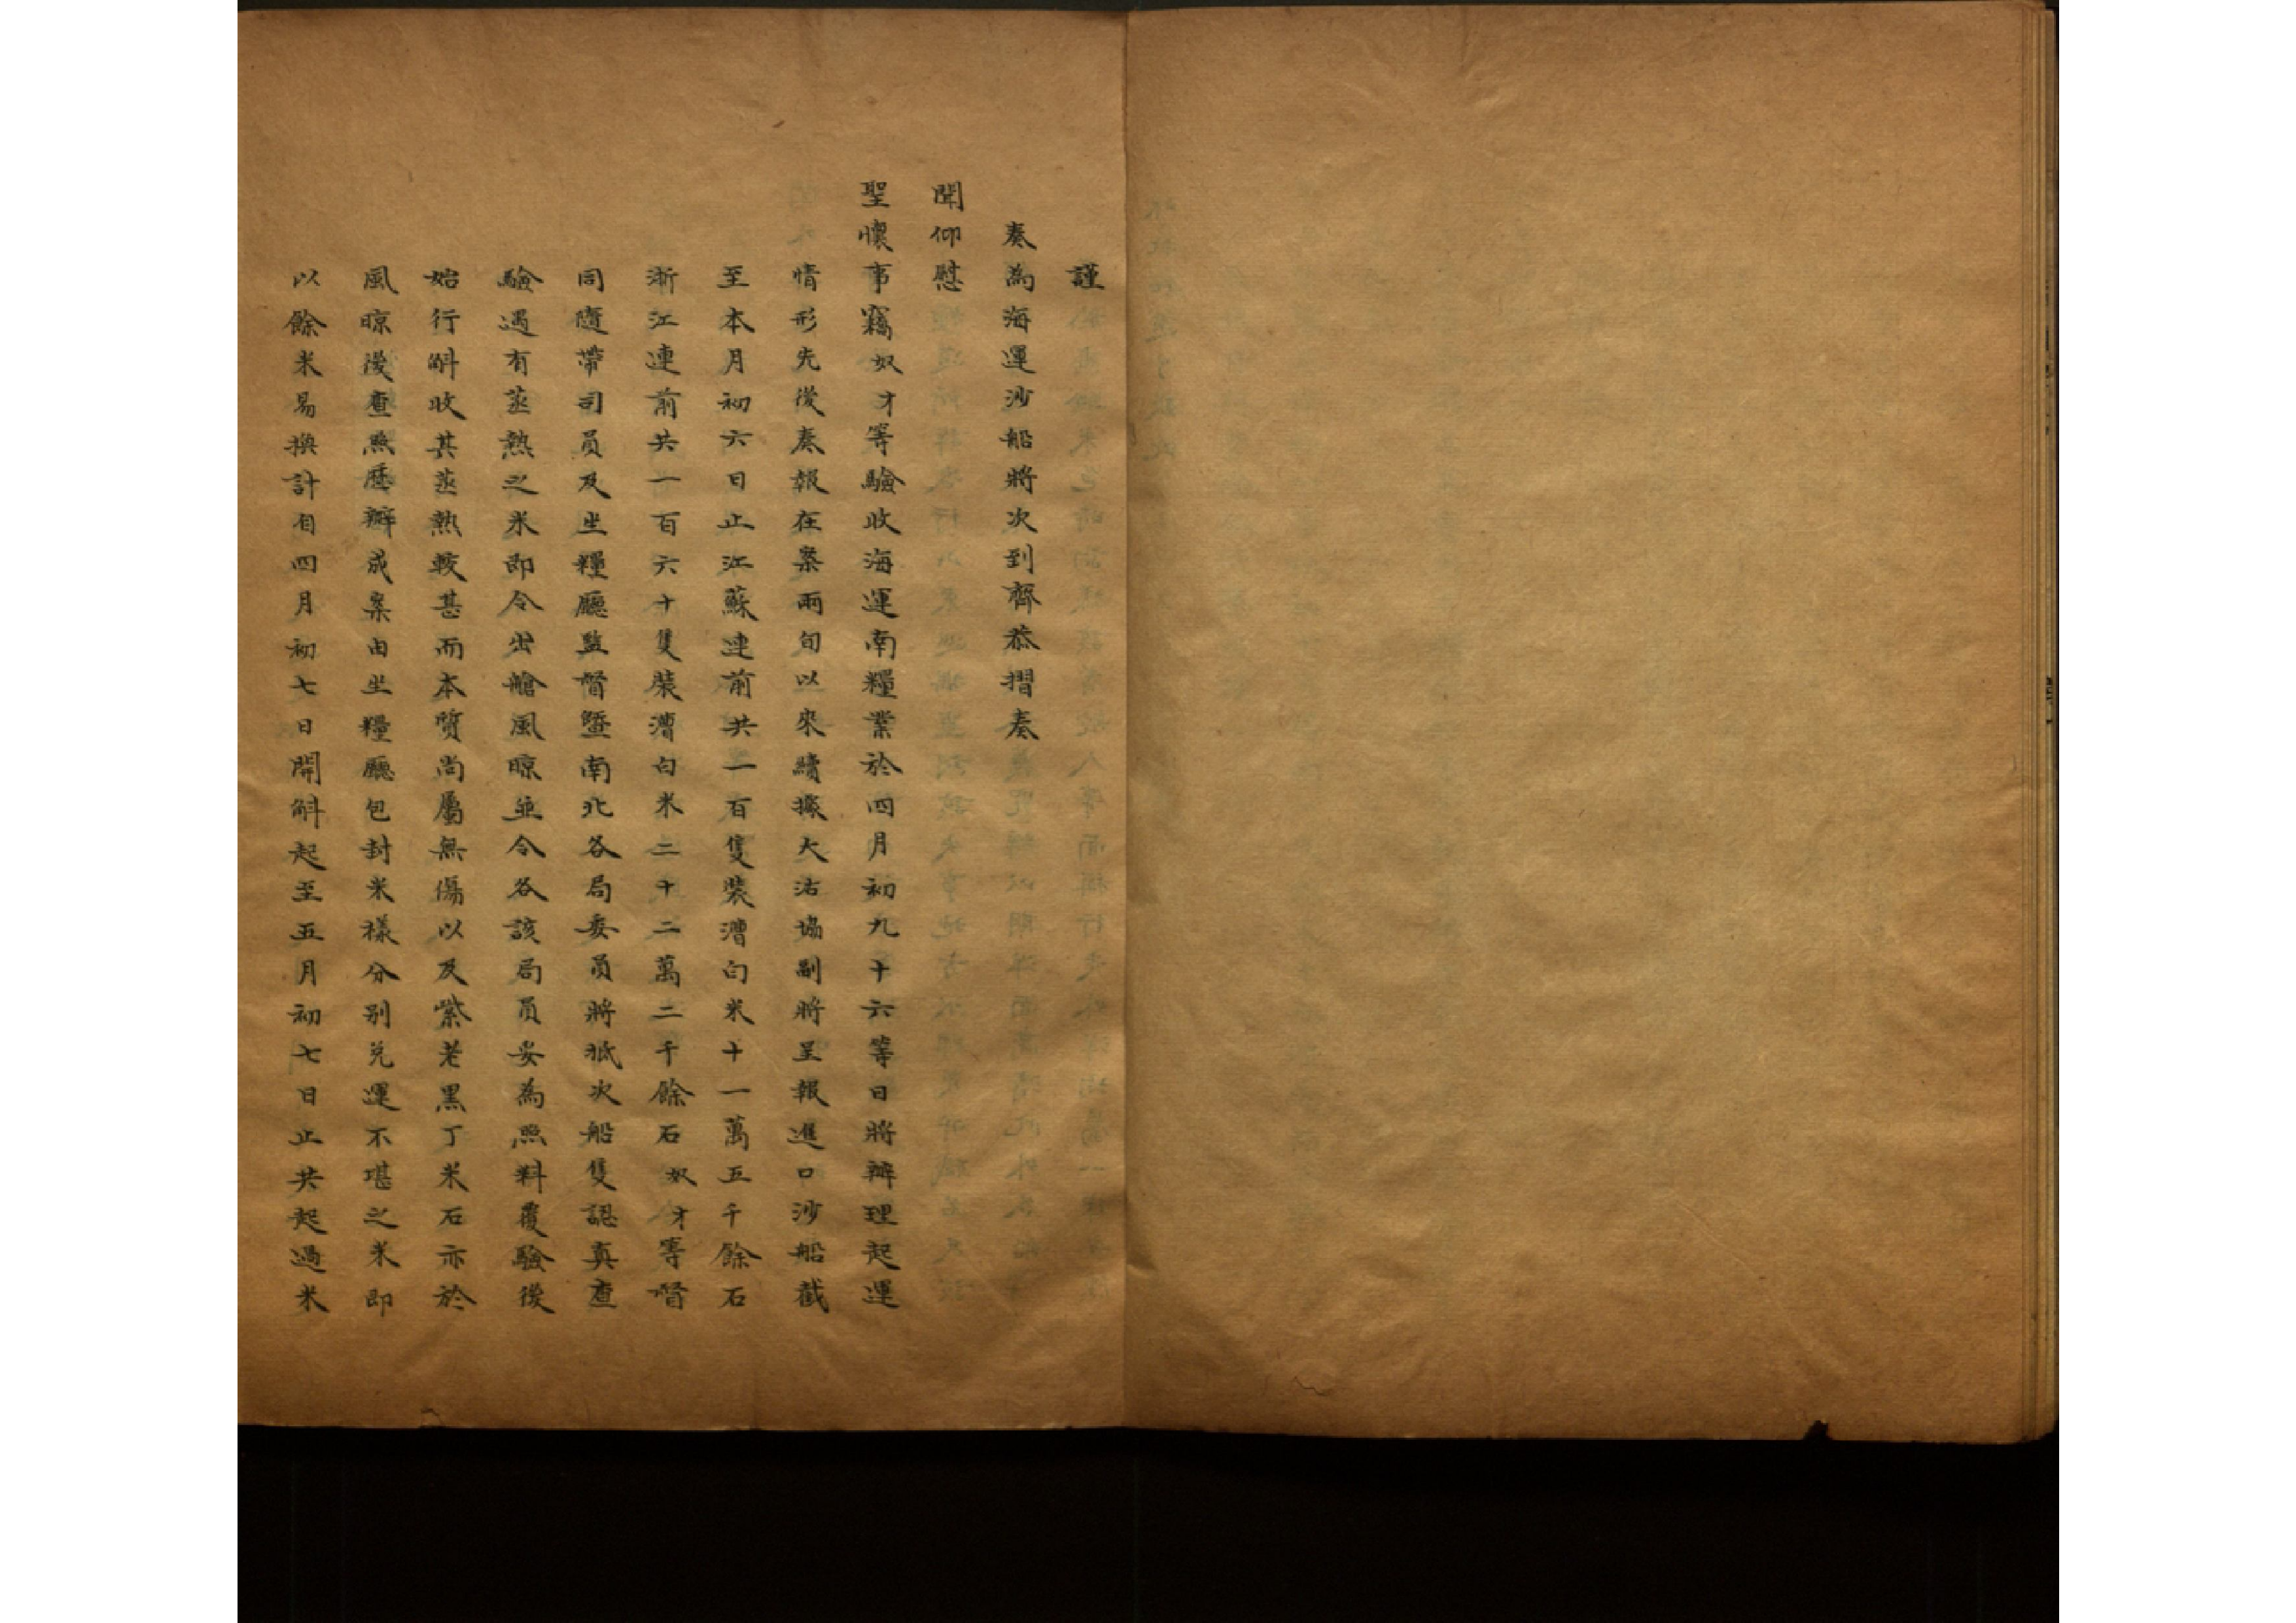 謹
奏為海運沙船將次到齊恭摺奏
聞仰慰
聖懷事竊奴才等驗收海運南糧業於四月初九十六等日將辦理起運
情形先後奏報在案兩旬以來續據大沽協副將呈報進口沙船截
至本月初六日止江蘇連前共一百隻裝漕白米十一萬五千餘石
浙江連前共一百六十隻裝漕白米二十二萬二千餘石奴才等督
同隨帶司員及坐糧廳監督暨南北各局委員將抵次船隻認真查
驗遇有蒸熱之米即令出艙風晾並令各該局員妥為照料覆驗後
始行斛收其蒸熱較甚而本質尚屬無傷以及紫老黑丁米石亦於
風晾後查照歷辦成案由坐糧廳包封米樣分別兌運不堪之米即
以餘米易換計自四月初七日開斛起至五月初七日止共起過米